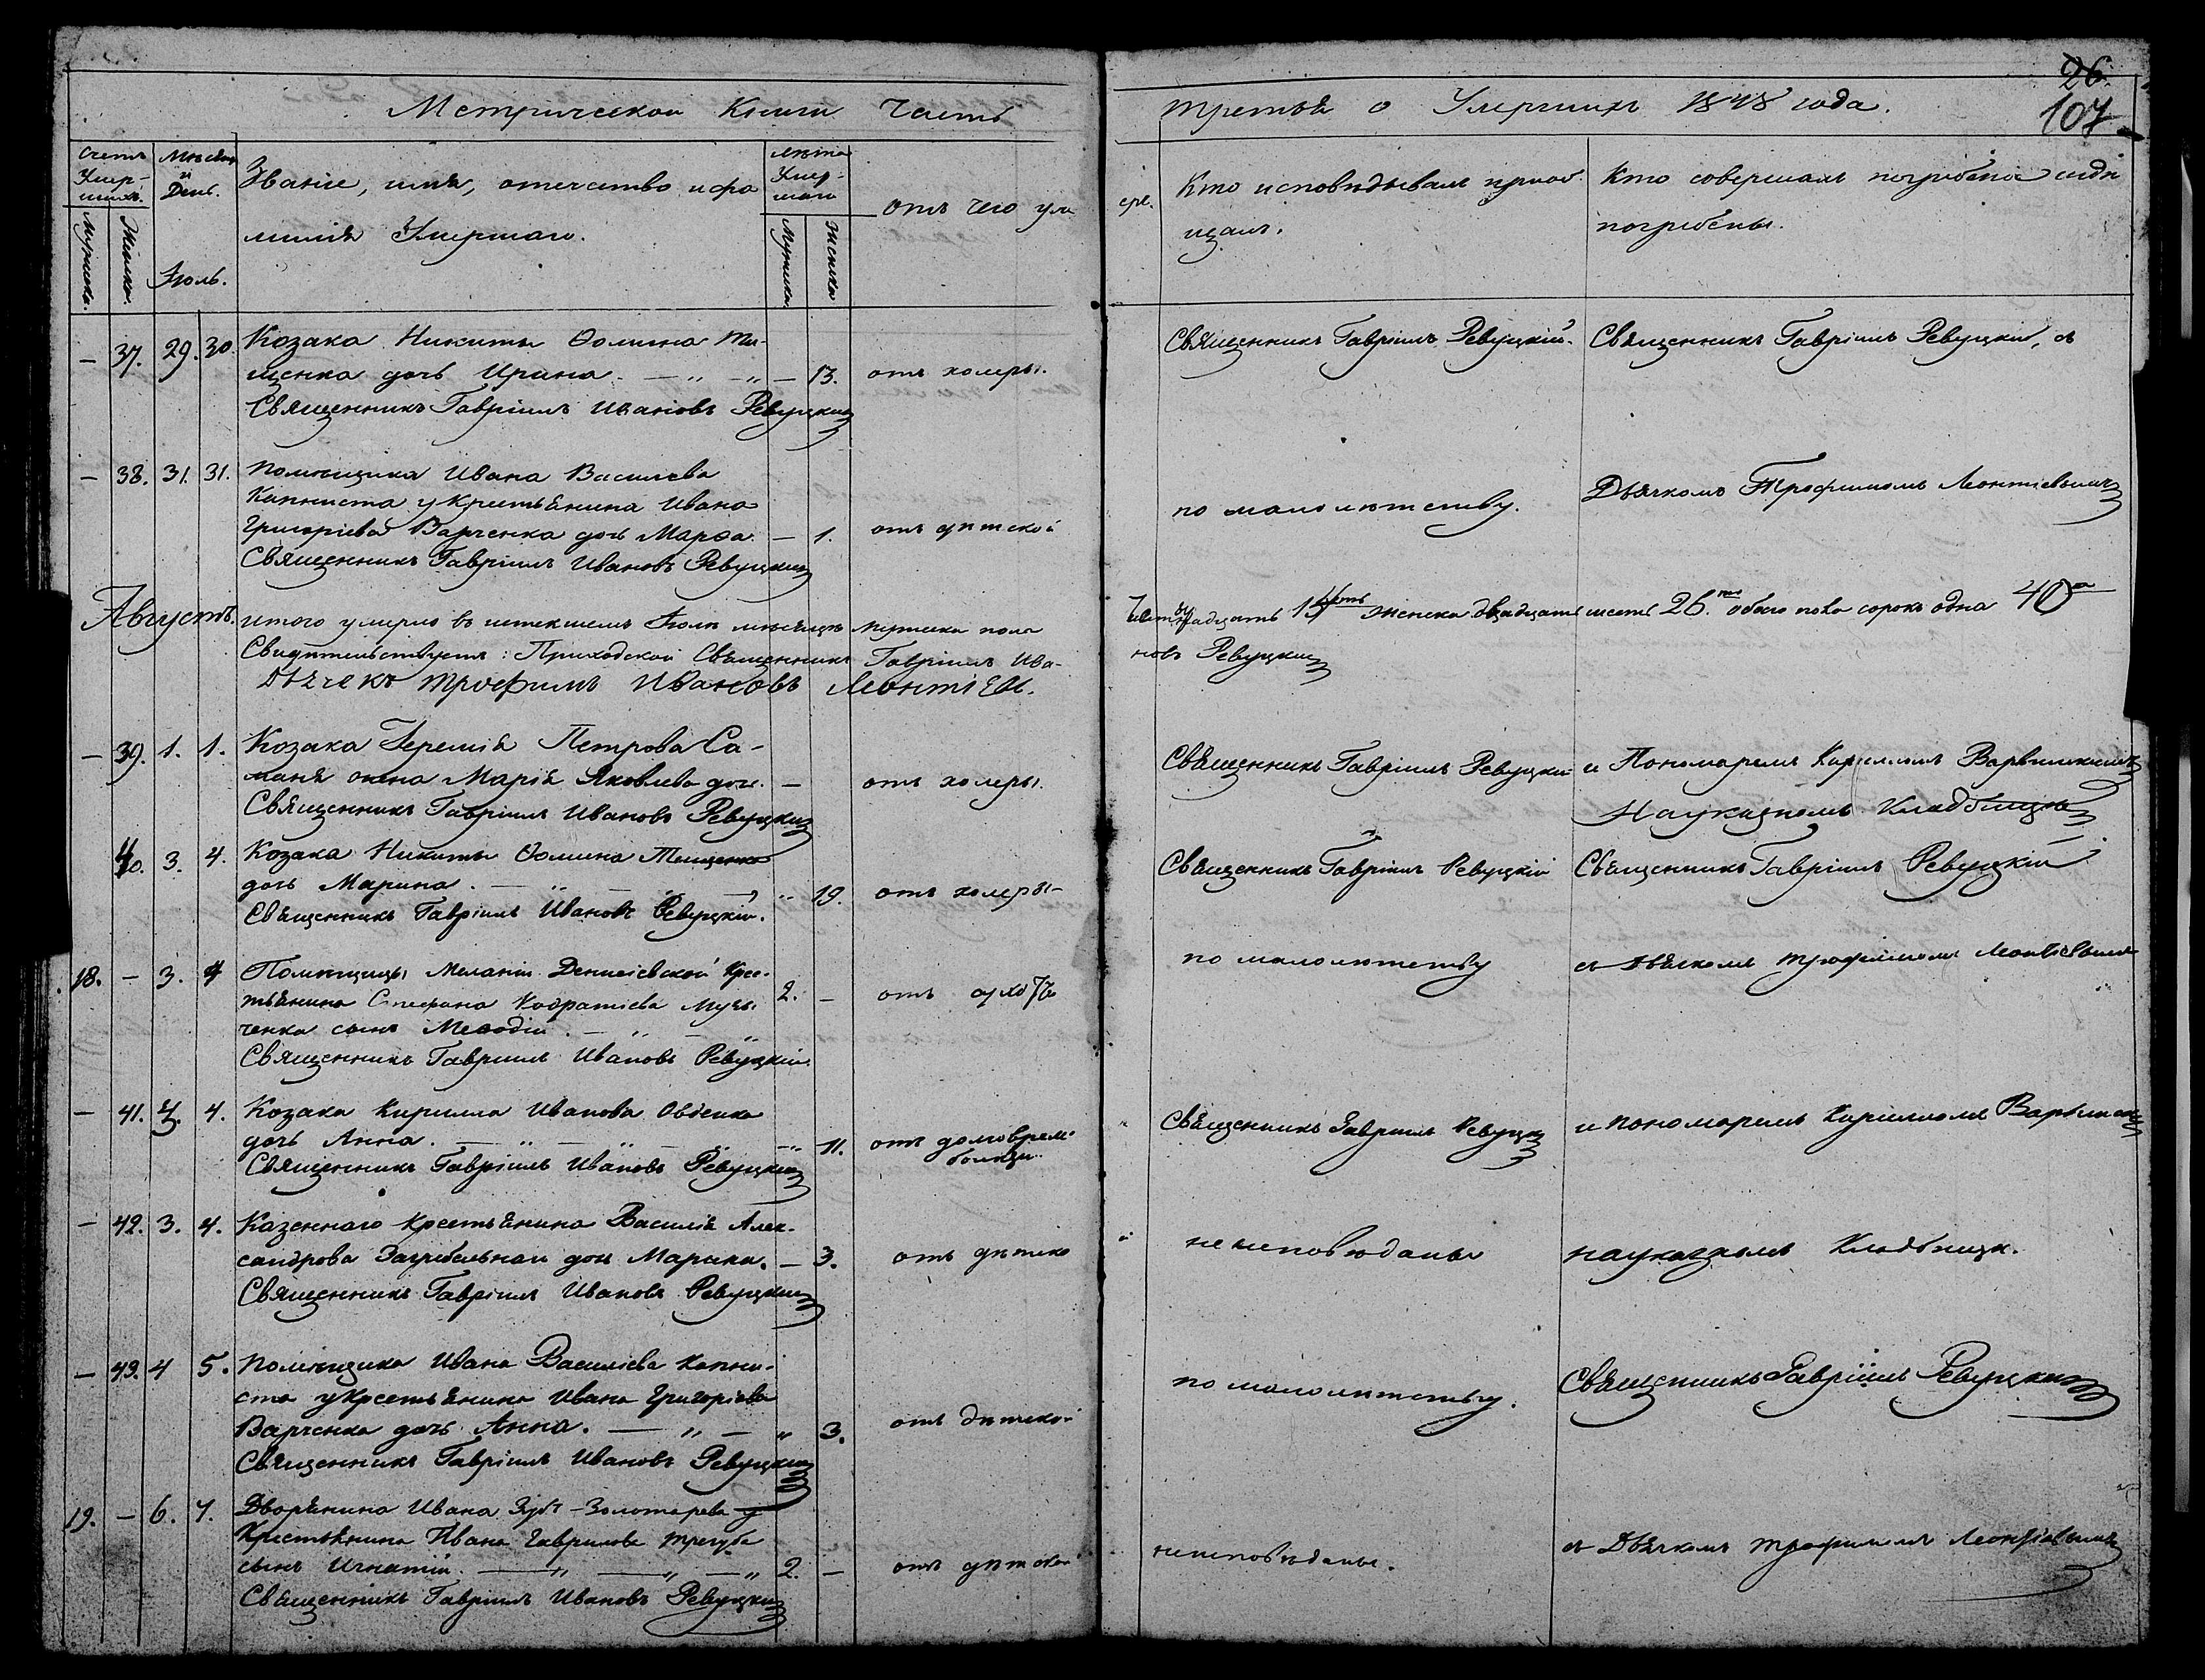 26.
107
Метрической Книги Часть
третья о Умершихъ 1848 года.
Счетъ Умер-шихъ.
Мужеска.
Женска.
Мѣсяцъ и День.
Іюль.
Званіе, имя, отечество и фа
милія Умершаго.
лѣта Умер-шаго
Мужеска.
Женска
отъ чего уме
ре.
Кто исповѣдывалъ приоб
щалъ.
Кто совершалъ погребеніе и гдѣ
погребены.
— 37. 29. 30. Козака Никиты Ѳомина Ти-
щенка дочь Ирина. — „ — „ — 13. отъ холеры.
Священникъ Гавріилъ Ивановъ Ревуцкій
Священникъ Гавріилъ Ревуцкій.
Священникъ Гавріилъ Ревуцкій, съ
— 38. 31. 31. Помѣщика Ивана Василева
Капниста у Крестьянина Ивана
Григоріева Варченка дочь Марѳа. — 1. отъ дѣтской
Священникъ Гавріилъ Ивановъ Ревуцкій
по малолѣтству.
Дьячкомъ Трофимомъ Леонтіевымъ
Августъ.
итого умерло въ истекшемъ Іюлѣ мѣсяцѣ мужеска пола
женска двадцать шесть 26. обоего пола сорокъ одна 40
Свидѣтельствуетъ: Приходской Священникъ Гавріилъ Ива-
новъ Ревуцкій
Дьячекъ Трофимъ Ивановъ Леонтіевъ.
— 39. 1. 1. Козака Іеремія Петрова Са-
маня жена Марія Яковлева дочь. — отъ холеры.
Священникъ Гавріилъ Ивановъ Ревуцкій
Священникъ Гавріилъ Ревуцкій
и Пономаремъ Кирилломъ
На указномъ Кладбищѣ
40. 3. 4. Козака Никиты Ѳомина Тищенка
дочь Марина. — „ — 19. отъ холеры
Священникъ Гавріилъ Ивановъ Ревуцкій.
Священникъ Гавріилъ Ревуцкій
Священникъ Гавріилъ Ревуцкій
18. — 3. 4 Помѣщицы Меланіи Денисіевской Крес-
тьянина Стефана Кодратіева
ченка сынъ Меѳодій. — „ — „ 2. — отъ
Священникъ Гавріилъ Ивановъ Ревуцкій.
по малолѣтству
съ Дьячкомъ Трофимомъ Леонтіевымъ
— 41. 3. 4. Козака Кирилла Иванова Овденка
дочь Анна. — „ — „ — „ 11. отъ долговрем.
болѣзн.
Священникъ Гавріилъ Ивановъ Ревуцкій
Священникъ Гавріилъ Ревуцкій
и пономаремъ Кирилломъ
— 42. 3. 4. Казеннаго Крестьянина Василія Алек-
сандрова Загребельнаго дочь Марина. — 3. отъ дѣтско
Священникъ Гавріилъ Ивановъ Ревуцкій
не исповѣданы
на указномъ Кладбищѣ.
— 43. 4 5. Помѣщика Ивана Василіева Капни-
ста у Крестьянина Ивана Григоріева
Варченка дочь Анна. — „ — „ 3. отъ дѣтской
Священникъ Гавріилъ Ивановъ Ревуцкій
по малолѣтству.
Священникъ Гавріилъ Ревуцкій
19. — 6. 7. Дворянина Ивана Зубъ-Золотарева у
Крестьянина Ивана Гаврилова Трегуба
сынъ Игнатій. — „ — „ — „ 2. — отъ дѣтской
Священникъ Гавріилъ Ивановъ Ревуцкій
не исповѣданы.
съ Дьячкомъ Трофимомъ Леонтіевымъ